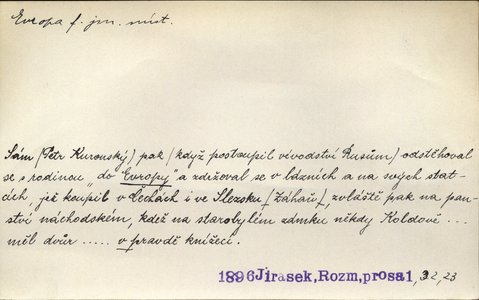 Evropa f. jm. míst.
Sám (Petr Kuronský) pak (když postoupil vévodství Rusům) odstěhoval
se s rodinou „do Evropy" a zdržoval se v lázních a na svých stat-
cích, jež koupil v Čechách i ve Slezsku (Zaháň), zvláště pak na pan-
ství náchodském, kdež na starobylém zámku někdy Koldově ...
měl dvůr ..... v pravdě knížecí.
1896 Jirasek, Rozm, prosa 1, 32, 23